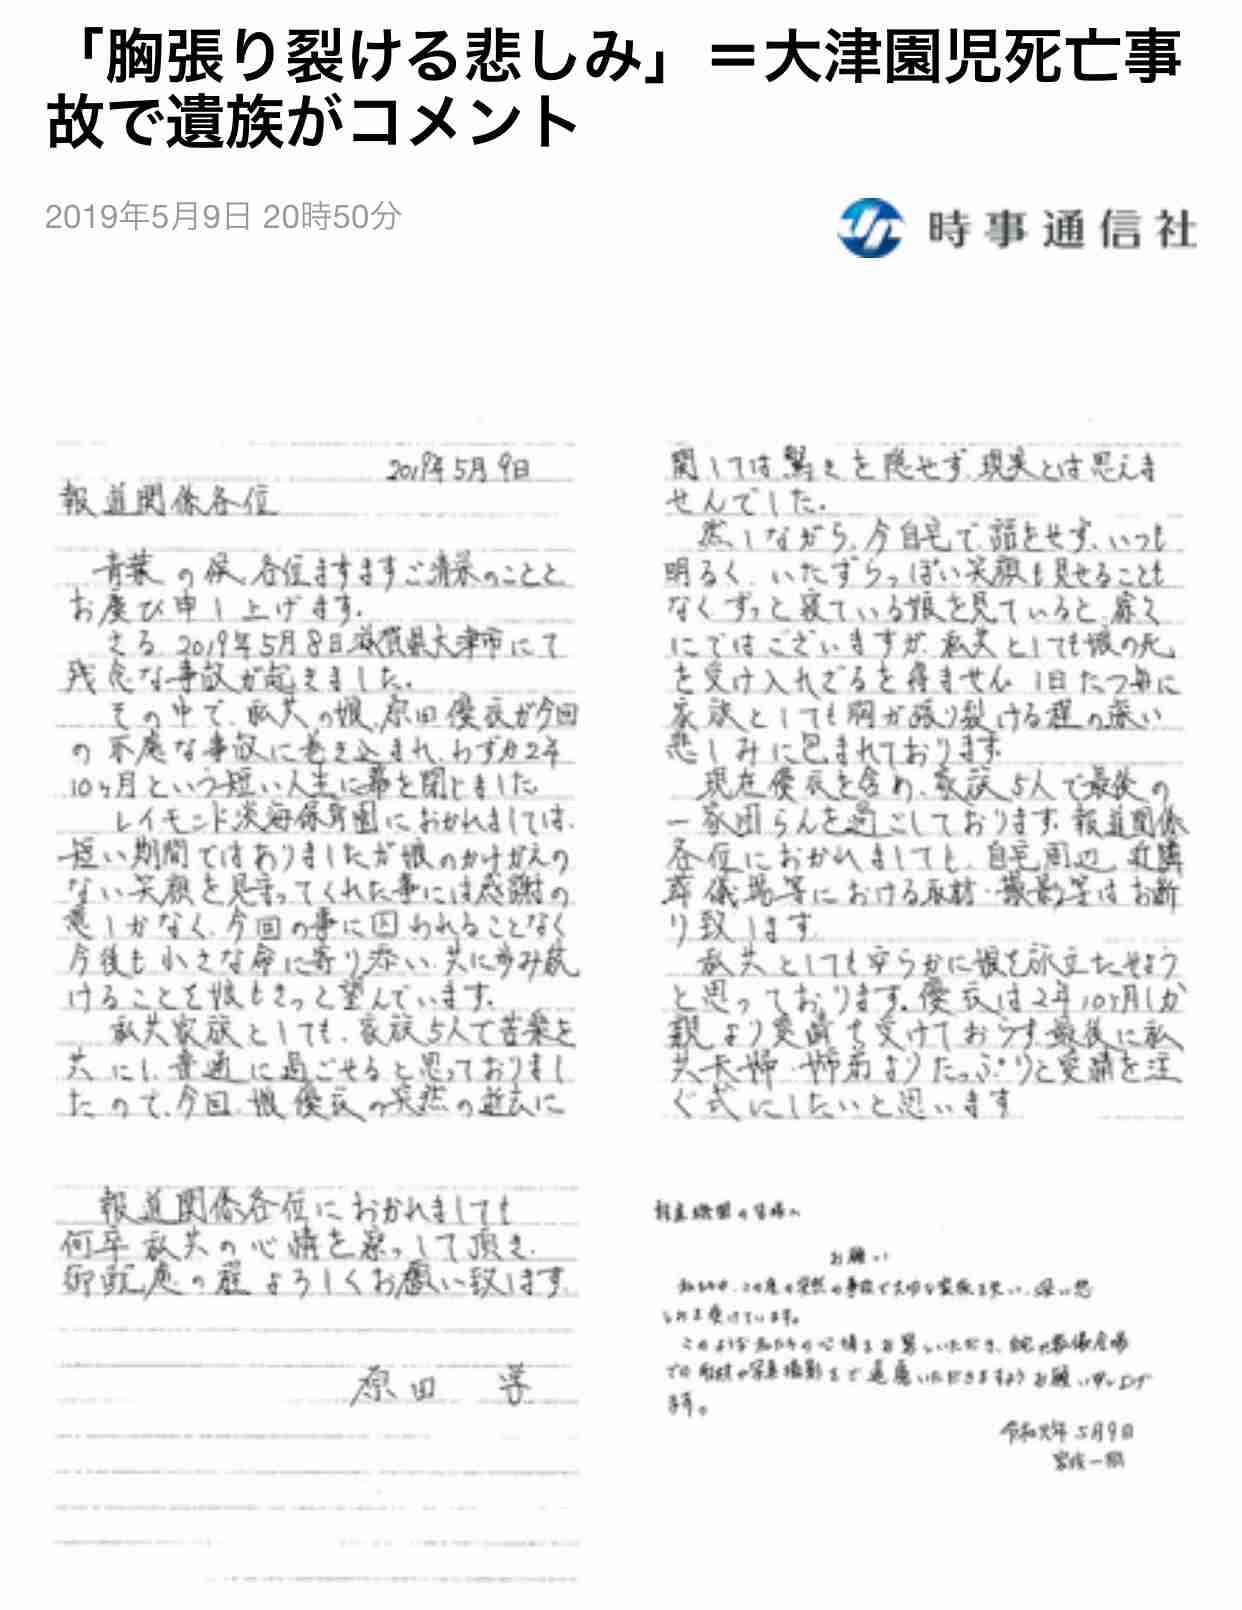 「胸張り裂ける悲しみ」＝大津園児死亡事
故で遺族がコメント
2019年5月9日 20時50分
時事通信社
2019年5月9日
報道関係各位
青葉の候、各位ますますご清栄のことと
お慶び申し上げます。
さる2019年5月8日滋賀県大津市にて
残念な事故が起きました。
その中で、私共の娘、原田優衣が今回
の不慮な事故に巻き込まれ、わずか2年
10ヶ月という短い人生に幕を閉じました
レイモンド淡海保育園におかれましては、
短い期間ではありましたが娘のかけがえの
ない笑顔を見守ってくれた事には感謝の
意しかなく、今回の事に囚われることなく
今後も小さな命に寄り添い、共に歩み続
けることを娘もきっと望んでいます。
私共家族としても、家族5人で苦楽を
共にし、普通に過ごせると思っておりまし
たので、今回、娘優衣の突然の逝去に
関しては驚きを隠せず、現実とは思えま
せんでした。
然しながら、今自宅で、話をせず、いつも
明るく、いたずらっぽい笑顔も見せることも
なくずっと寝ている娘を見ていると、寡々
にではございますが、私共としても娘の死
を受け入れざるを得ません。1日たつ毎に
家族としても胸が張り裂ける程の深い
悲しみに包まれております。
現在優衣を含め、家族5人で最後の
一家団らんを過ごしております。報道関係
各位におかれましても、自宅周辺、近隣
葬儀場等における取材・撮影等はお断
り致します。
私共としても安らかに娘を旅立たせよう
と思っております。優衣は2年10ヶ月しか
親より愛情を受けておらず、最後に私
共夫婦・姉弟よりたっぷりと愛情を注
ぐ式にしたいと思います
報道関係各位におかれましても
何卒私共の心情を察っして頂き、
御配慮の程よろしくお願い致します。
原田 学
報道機関の皆様へ
お願い
私たちは、この度の突然の事故で大切な家族を失い、深い悲
しみを受けています。
このような私たちの心情をお察しいただき、自宅や葬儀会場
での取材や写真撮影をご遠慮いただきますようお願い申し上げ
ます。
令和元年5月9日
家族一同